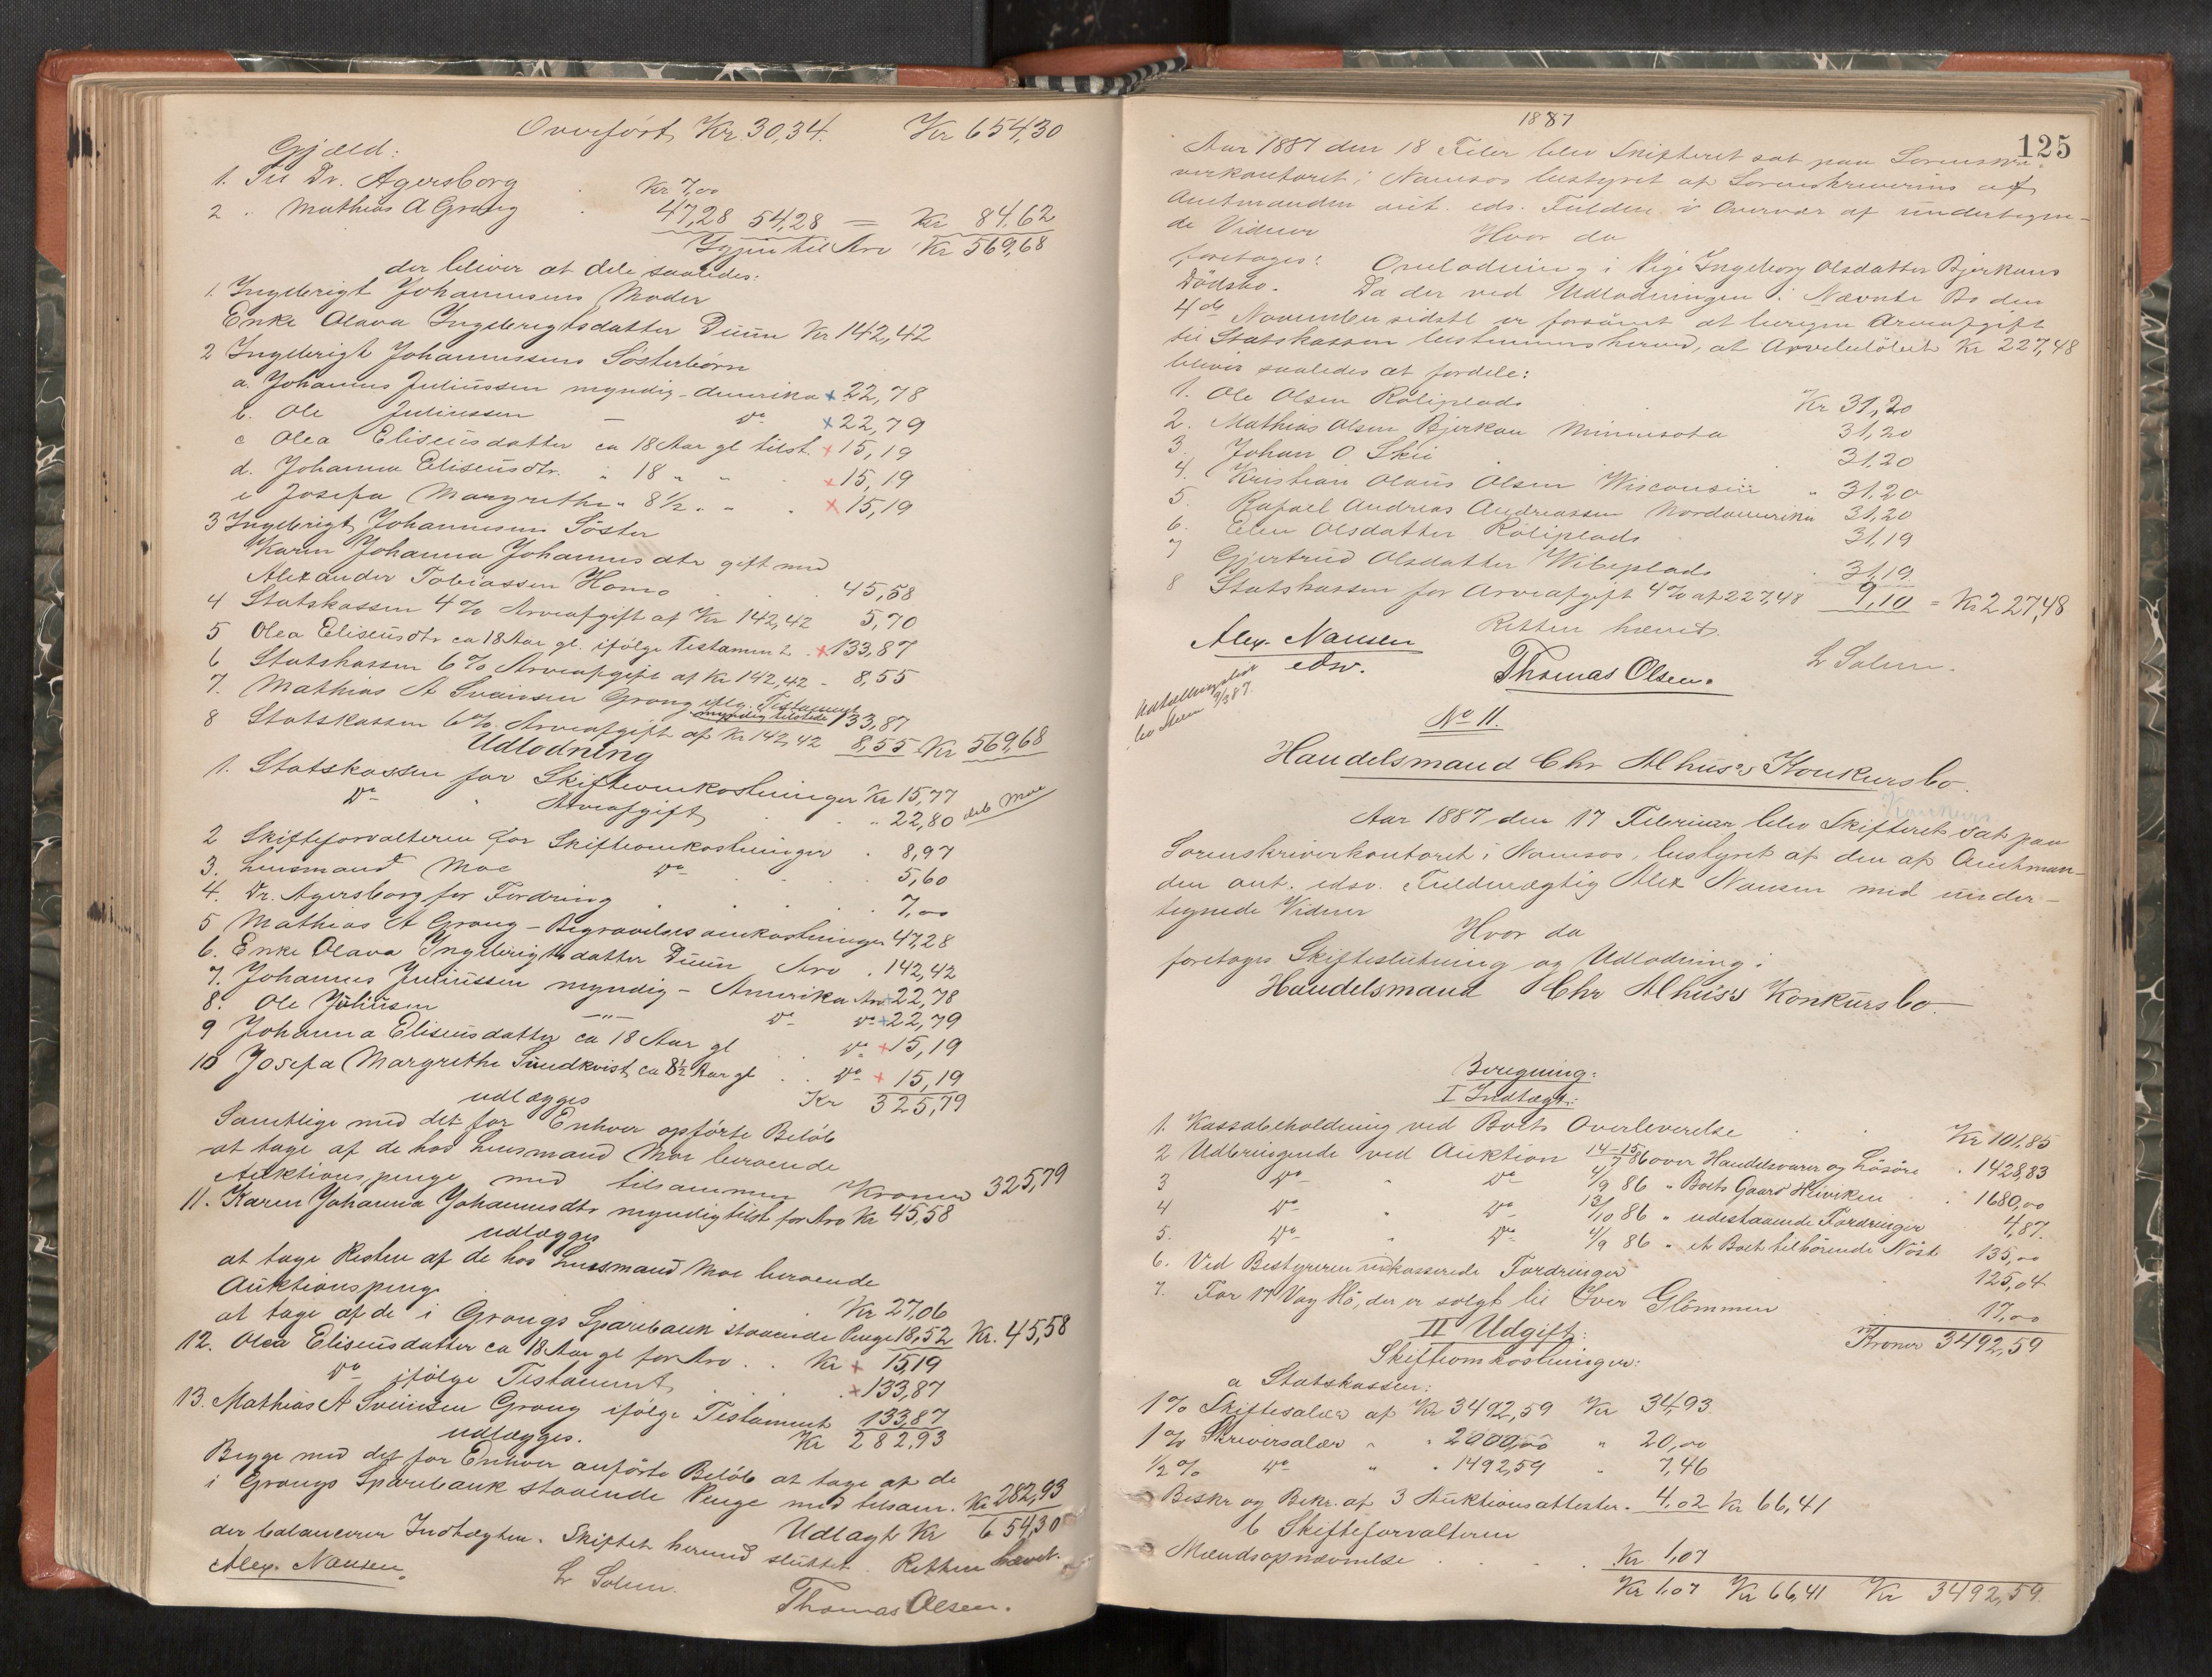 Overført Kr. 30,34. Kr 654,30
Gjæld:
1. Til Dr. Agersborg Kr 7,00
2 " Mathias A Grong 47,28 54,28 = Kr 84,62
Igjen til Arv Kr 569,68
der bliver at dele saaledes:
1. Ingebrigt Johannesens Moder
Enke Olava Ingebrigtsdatter Duun Kr 142,42
2 Ingebrigt Johannessens Søsterbørn
a. Johannes Juliussen myndig - Amerika + 22,78
b. Ole Juliussen — do + 22,79
c Olea Eliseusdatter ca 18 Aar gl tilst. + 15,19
d. Johanna Eliseusdtr. " 18 " " + 15,19
e Josefa Margrethe " 8 1/2 " " + 15,19
3 Ingebrigt Johannesens Søster
Karen Johanna Johannesdtr gift med
Alexander Tobiassen Homo 45,58
4 Statskassen 4 % Arveafgift af Kr 142,42 5,70
5 Olea Eliseusdtr ca 18 Aar gl. ifølge Testament . + 133,87
6 Statskassen 6 % Arveafgift af Kr 142,42 - 8,55
7. Mathias A Sveinsen Grong iflg. Testament
myndig tilstede 133,87
8 Statskassen 6 %. Arveafgift af Kr 142,42 8,55 Kr 569,68
Udlodning
1. Statskassen for Skifteomkostninger Kr 15,77
do " Arveafgift " 22,80 deb Moe
2 Skifteforvalteren for Skifteomkostninger . 8,97
3. Lensmand Moe do 5,60
4. Dr. Agersborg for Fordring 7,00
5 Mathias A Grong - Begravelsesomkostninger 47,28
6. Enke Olava Ingebrigtsdatter Duun Arv . 142,42
7. Johannes Juliussen myndig - Amerika Arv + 22,78
8. Ole Juliusen —"— do do + 22,79
9 Johanna Eliseusdatter ca 18 Aar gl . . do + 15,19
10 Josefa Margrethe Sundkvist ca 8 1/2 Aar gl . . do + 15,19
udlægges Kr 325,79
Samtlige med det for Enhver opførte Beløb
at tage af de hos Lensmand Moe beroende
Auktionspenge med tilsammen Kroner 325,79
11. Karen Johanna Johannesdtr myndig tilst for Arv Kr 45,58
udlægges
at tage Resten af de hos Lensmand Moe beroende
Auktionspenge Kr 27,06
at tage af de i Grongs Sparebank staaende Penge 18,52 Kr. 45,58
12. Olea Eliseusdatter ca 18 Aar gl for Arv . . Kr + 15,19
do ifølge Testament + 133,87
13. Mathias A Sveinsen Grong ifølge Testament 133,87
udlægges. Kr 282,93
Begge med det for Enhver anførte Beløb at tage af de
i Grongs Sparebank staaende Penge med tilsam. Kr 282,93
Udlagt Kr 654,30
der balancerer Indtægten. Skiftet hermed sluttet. Retten hævet.
Alex. Nansen. L Solem. Thomas Olsen.
1887
125
Aar 1887 den 18 Feber blev Skifteret sat paa Sorenskri-
verkontoret i Namsos bestyret af Sorenskriverens af
Amtmanden aut. eds. Fuldm. i Overvær af undertegne-
de Vidner Hvor da
foretoges: Omlodning i Pige Ingeborg Olsdatter Bjerkans
Dødsbo. Da der ved Udlodningen i Nævnte Bo den
4de November sidstl er forsømt at beregne Arveafgift
til Statskassen bestemmes herved, at Arvebeløbet Kr 227,48
bliver saaledes at fordele:
1. Ole Olsen Røliplads Kr 31,20
2. Mathias Olsen Bjerkan Minnesota 31,20
3. Johan O Skii 31,20
4. Kristian Olaus Olsen Wisconsiin " 31,20
5. Rafael Andreas Andreassen Nordamerika 31,20
6. Elen Olsdatter Røliplads 31,19
7 Gjertrud Olsdatter Wibeplads . 31,19
8 Statskassen for Arveafgift 4 % af 227,48 9,10 = Kr 227,48
Retten hævet.
Alex. Nansen Thomas Olsen. L Solem.
edsv.
No 11.
Handelsmand Chr Alhus's Konkursbo.
Konkurs
Aar 1887 den 17 Februar blev Skifteret sat paa
Sorenskriverkontoret i Namsos, bestyret af den af Amtman-
den aut. edsv. Fuldmægtig Alex Nansen med under-
tegnede Vidner
Hvor da
foretoges Skifteslutning og Udlodning i
Handelsmand Chr Alhus's Konkursbo.
Beregning:
I Indtægt:
1. Kassabeholdning ved Boets Overleverelse Kr 101,85
2 Udbringende ved Auktion 14-15/7 86 over Handelsvarer og Løsøre . 1428,83
3 do " do 4/9 86 " Boets Gaard Heiviken . 1680,00
4 do " do 13/10 86 " udestaaende Fordringer 4,87.
5. do " do 4/9 86 " et Boet tilhørende Nøst 135,00
6. Ved Bestyreren indkasserede Fordringer 125,04
7. For 17 Vog Hø, der er solgt til Iver Glømmen 17,00
II Udgift: Kroner 3492,59
Skifteomkostninger:
a Statskassen:
1 % Skiftesalær af Kr 3492,59 Kr 34,93.
1 % Skriversalær " " 2000,00 " 20,00
1/2 % do " " 1492,59 " 7,46
Beskr og Bekr. af 3 Auktionsattester. 4,02 Kr 66,41
b Skifteforvalteren
Mændsopnævnelse Kr 1,07
Kr 1,07 Kr 66,41 Kr 3492,59.